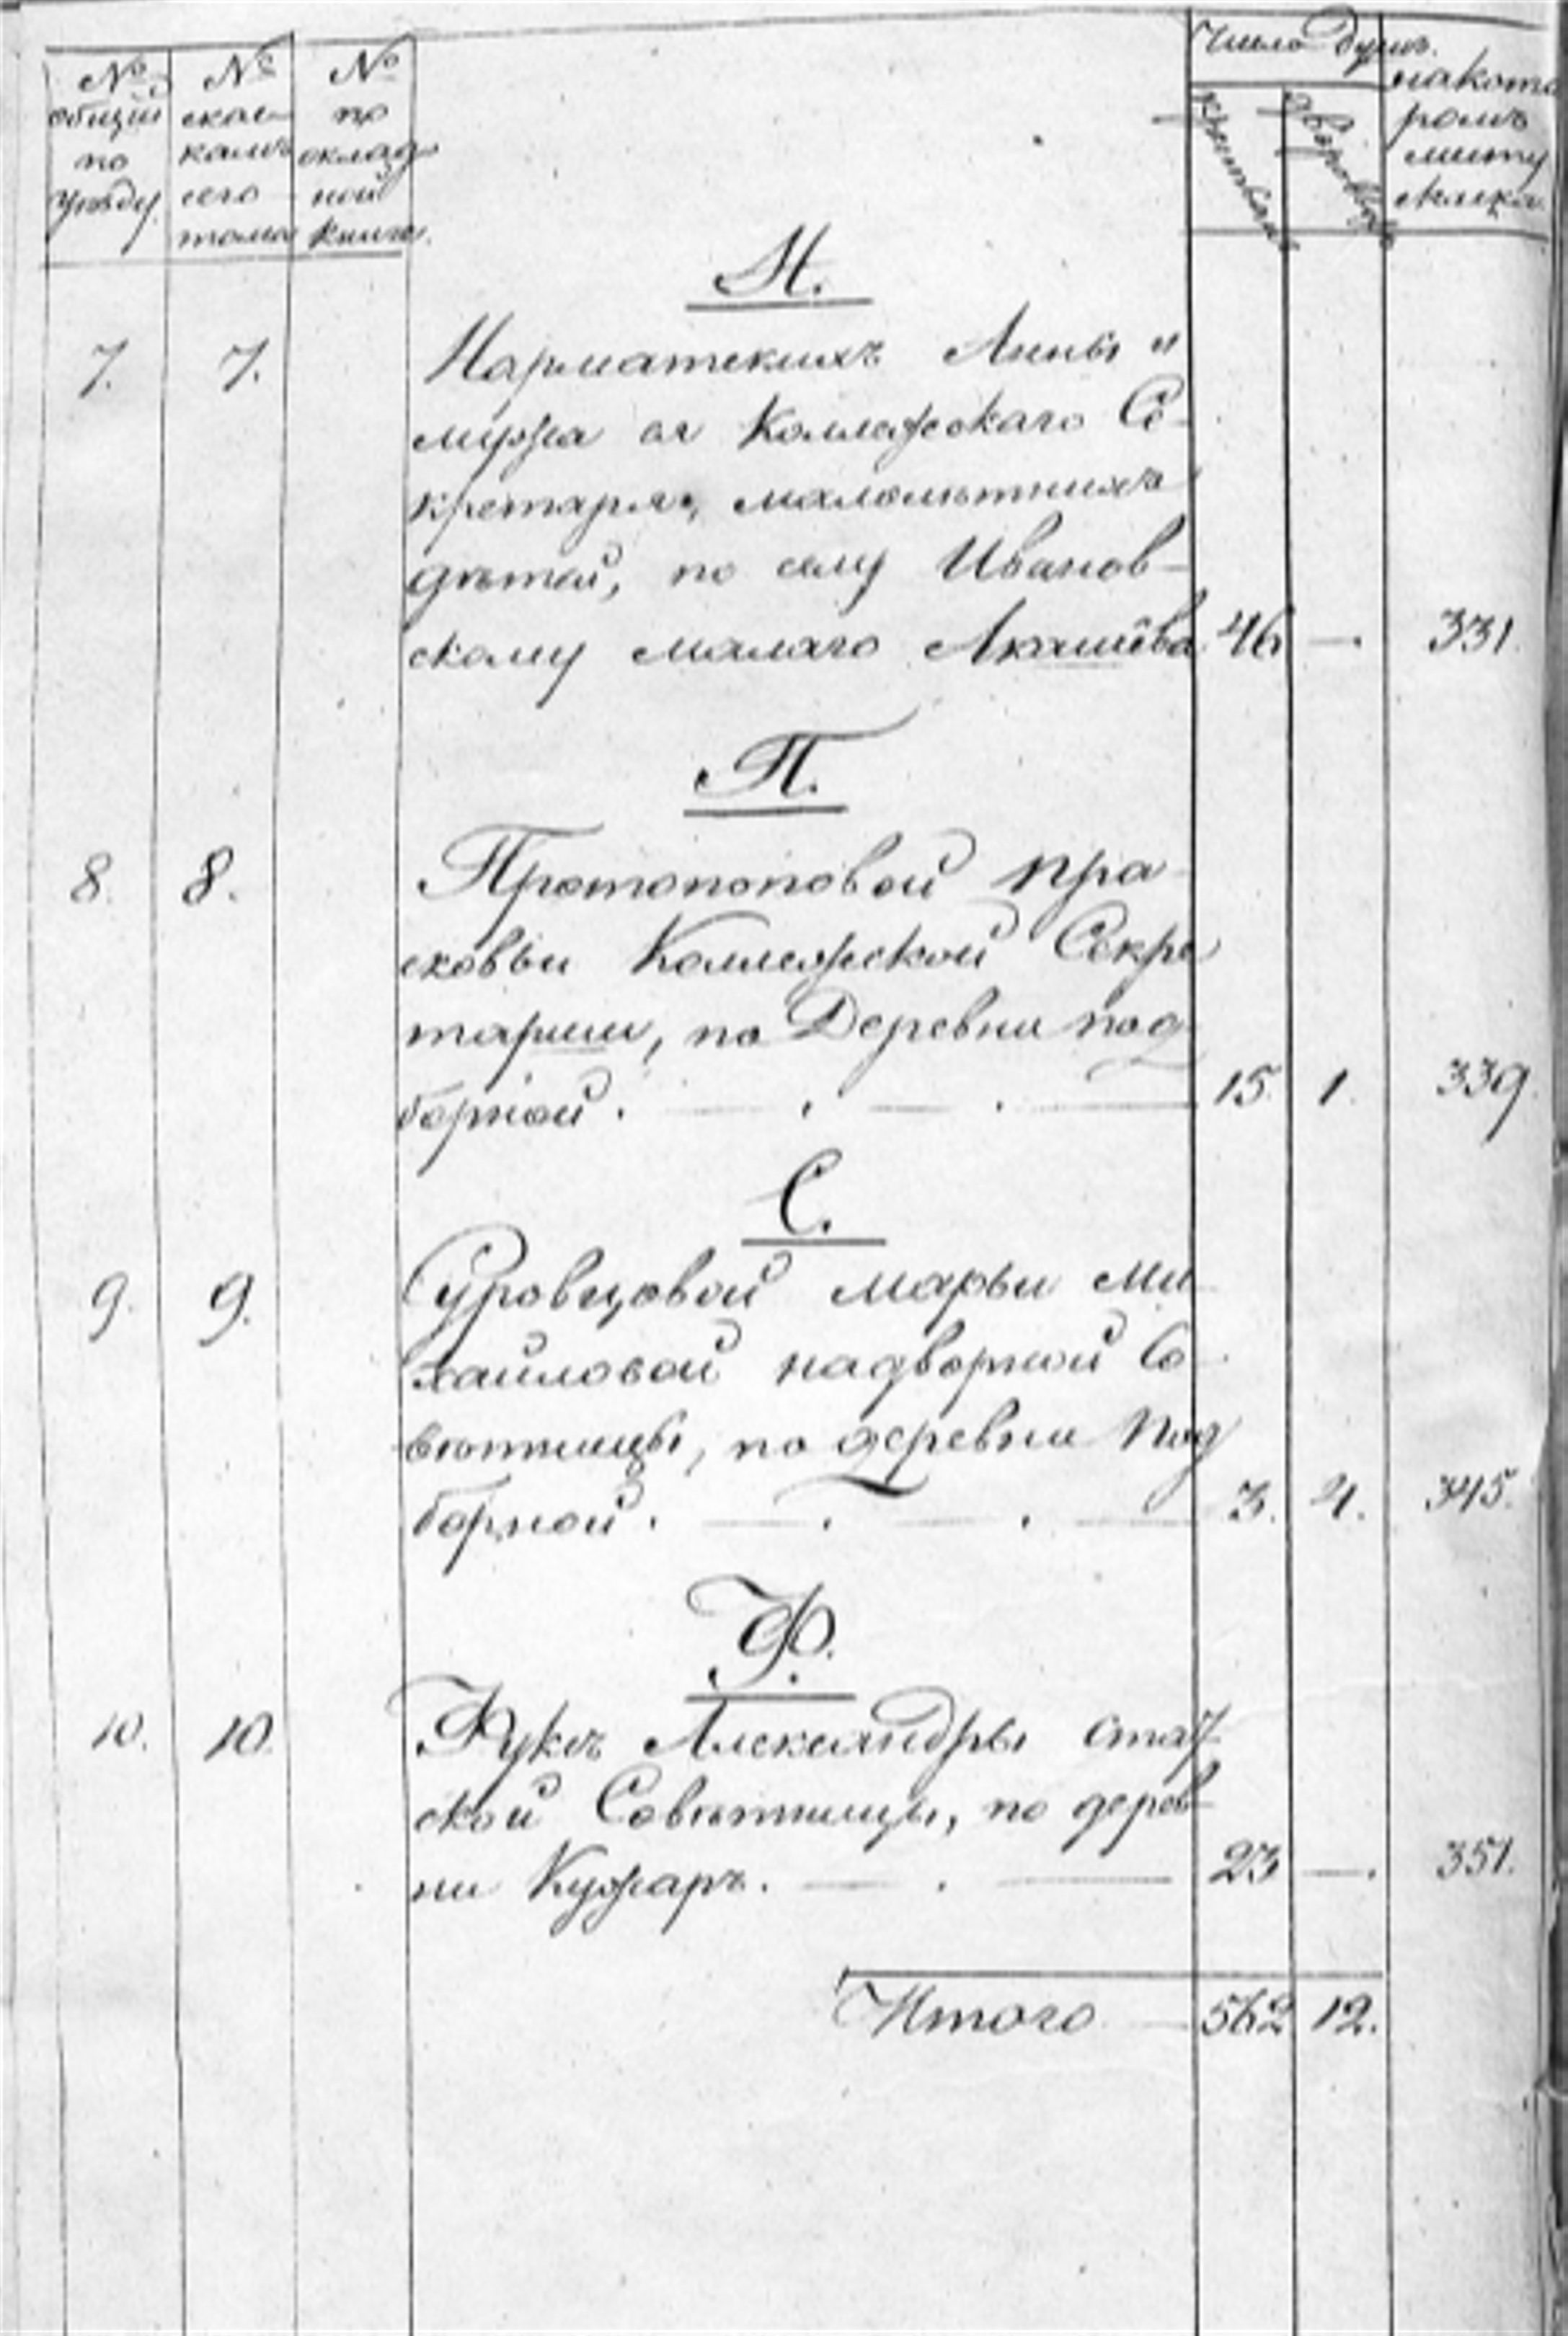 № общій по уѣзду
№ скас-камъ сего тома
№ по оклад ной книгѣ
Число душъ.
крестьянъ
дворовыхъ
на кото ромъ листу скаска
Н.
7. 7. Нарматскихъ Анны и
мужа ея Коллежскаго Се-
кретаря, малолѣтнихъ
дѣтей, по селу Иванов-
скому малаго Акашева 46 — . 331.
П.
8. 8. Протопоповой Пра-
сковьи Коллежской Секре
тарши, по Деревни под
борной . — . — . — 15. 1. 339.
С.
9. 9. Суровцовой марьи Ми
хаиловой надворной Со-
вѣтницы, по деревни Под
борной . — . — . — 3. 4. 345.
Ф.
10. 10. Фуксъ Александры Стат
ской Совѣтницы, по дерев-
ни Кужаръ . — . — 23 — . 351.
Итого — 562 12.